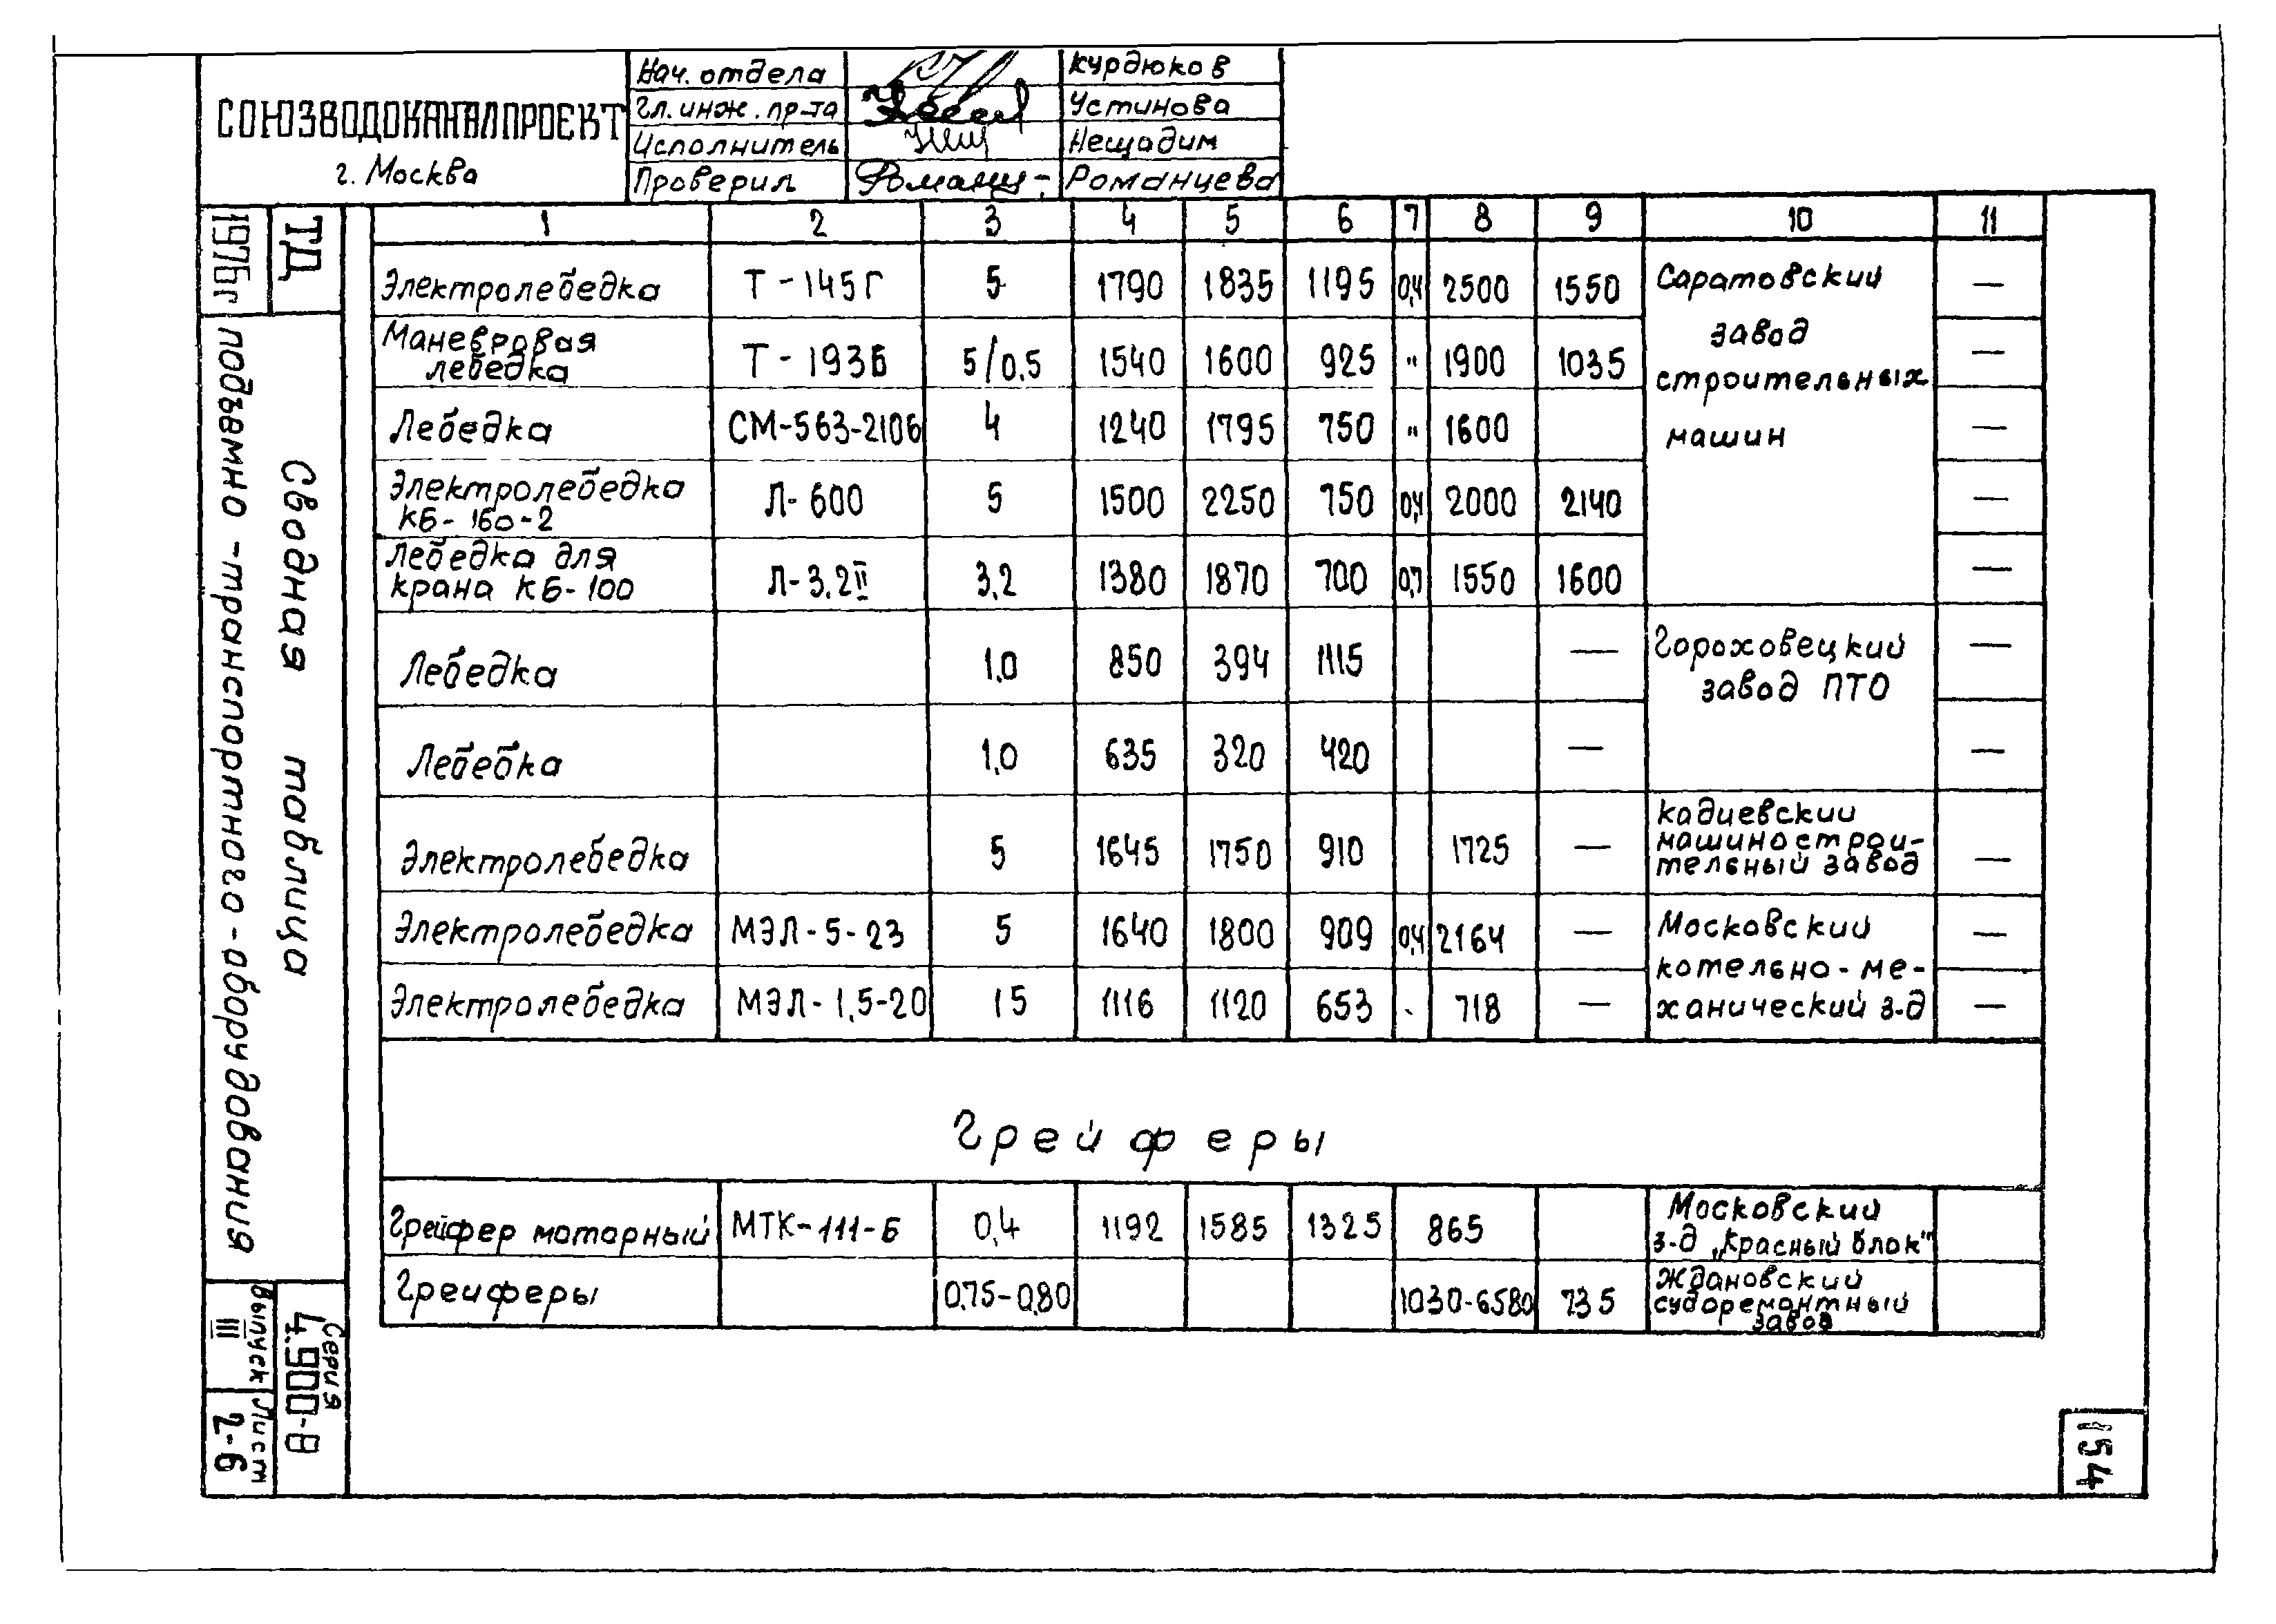 СОЮЗВОДОКАНАЛПРОЕКТ
г. Москва
Нач. отдела Курдюков
Гл. инж. пр-та Устинова
Исполнитель Нещадим
Проверил Романцева
1976г ТД
Сводная таблица
подъемно-транспортного-оборудования
Серия
4.900-8
Выпуск III
Лист 2-6
1 2 3 4 5 6 7 8 9 10 11
Электролебедка Т-145Г 5 1790 1835 1195 0,4 2500 1550 Саратовский —
завод
Маневровая
лебедка Т-193Б 5/0.5 1540 1600 925 " 1900 1035 строительных —
Лебедка СМ-563-210б 4 1240 1795 750 " 1600 машин —
Электролебедка
КБ-160-2 Л-600 5 1500 2250 750 0,4 2000 2140 —
Лебедка для
крана КБ-100 Л-3.2II 3,2 1380 1870 700 0,7 1550 1600 —
Лебедка 1.0 850 394 1115 — Гороховецкий —
завод ПТО
Лебебка 1.0 635 320 420 — —
Электролебедка 5 1645 1750 910 1725 — Кадиевский
машинострои-
тельный завод —
Электролебедка МЭЛ-5-23 5 1640 1800 909 0,4 2164 — Московский —
котельно-ме-
Электролебедка МЭЛ-1.5-20 15 1116 1120 653 718 — ханический з-д —
Грейферы
Грейфер моторный МТК-111-Б 0,4 1192 1585 1325 865 Московский
з-д „Красный блок"
Грейферы 0.75-0.80 1030-6580 735 Ждановский
судоремонтный
завод
154